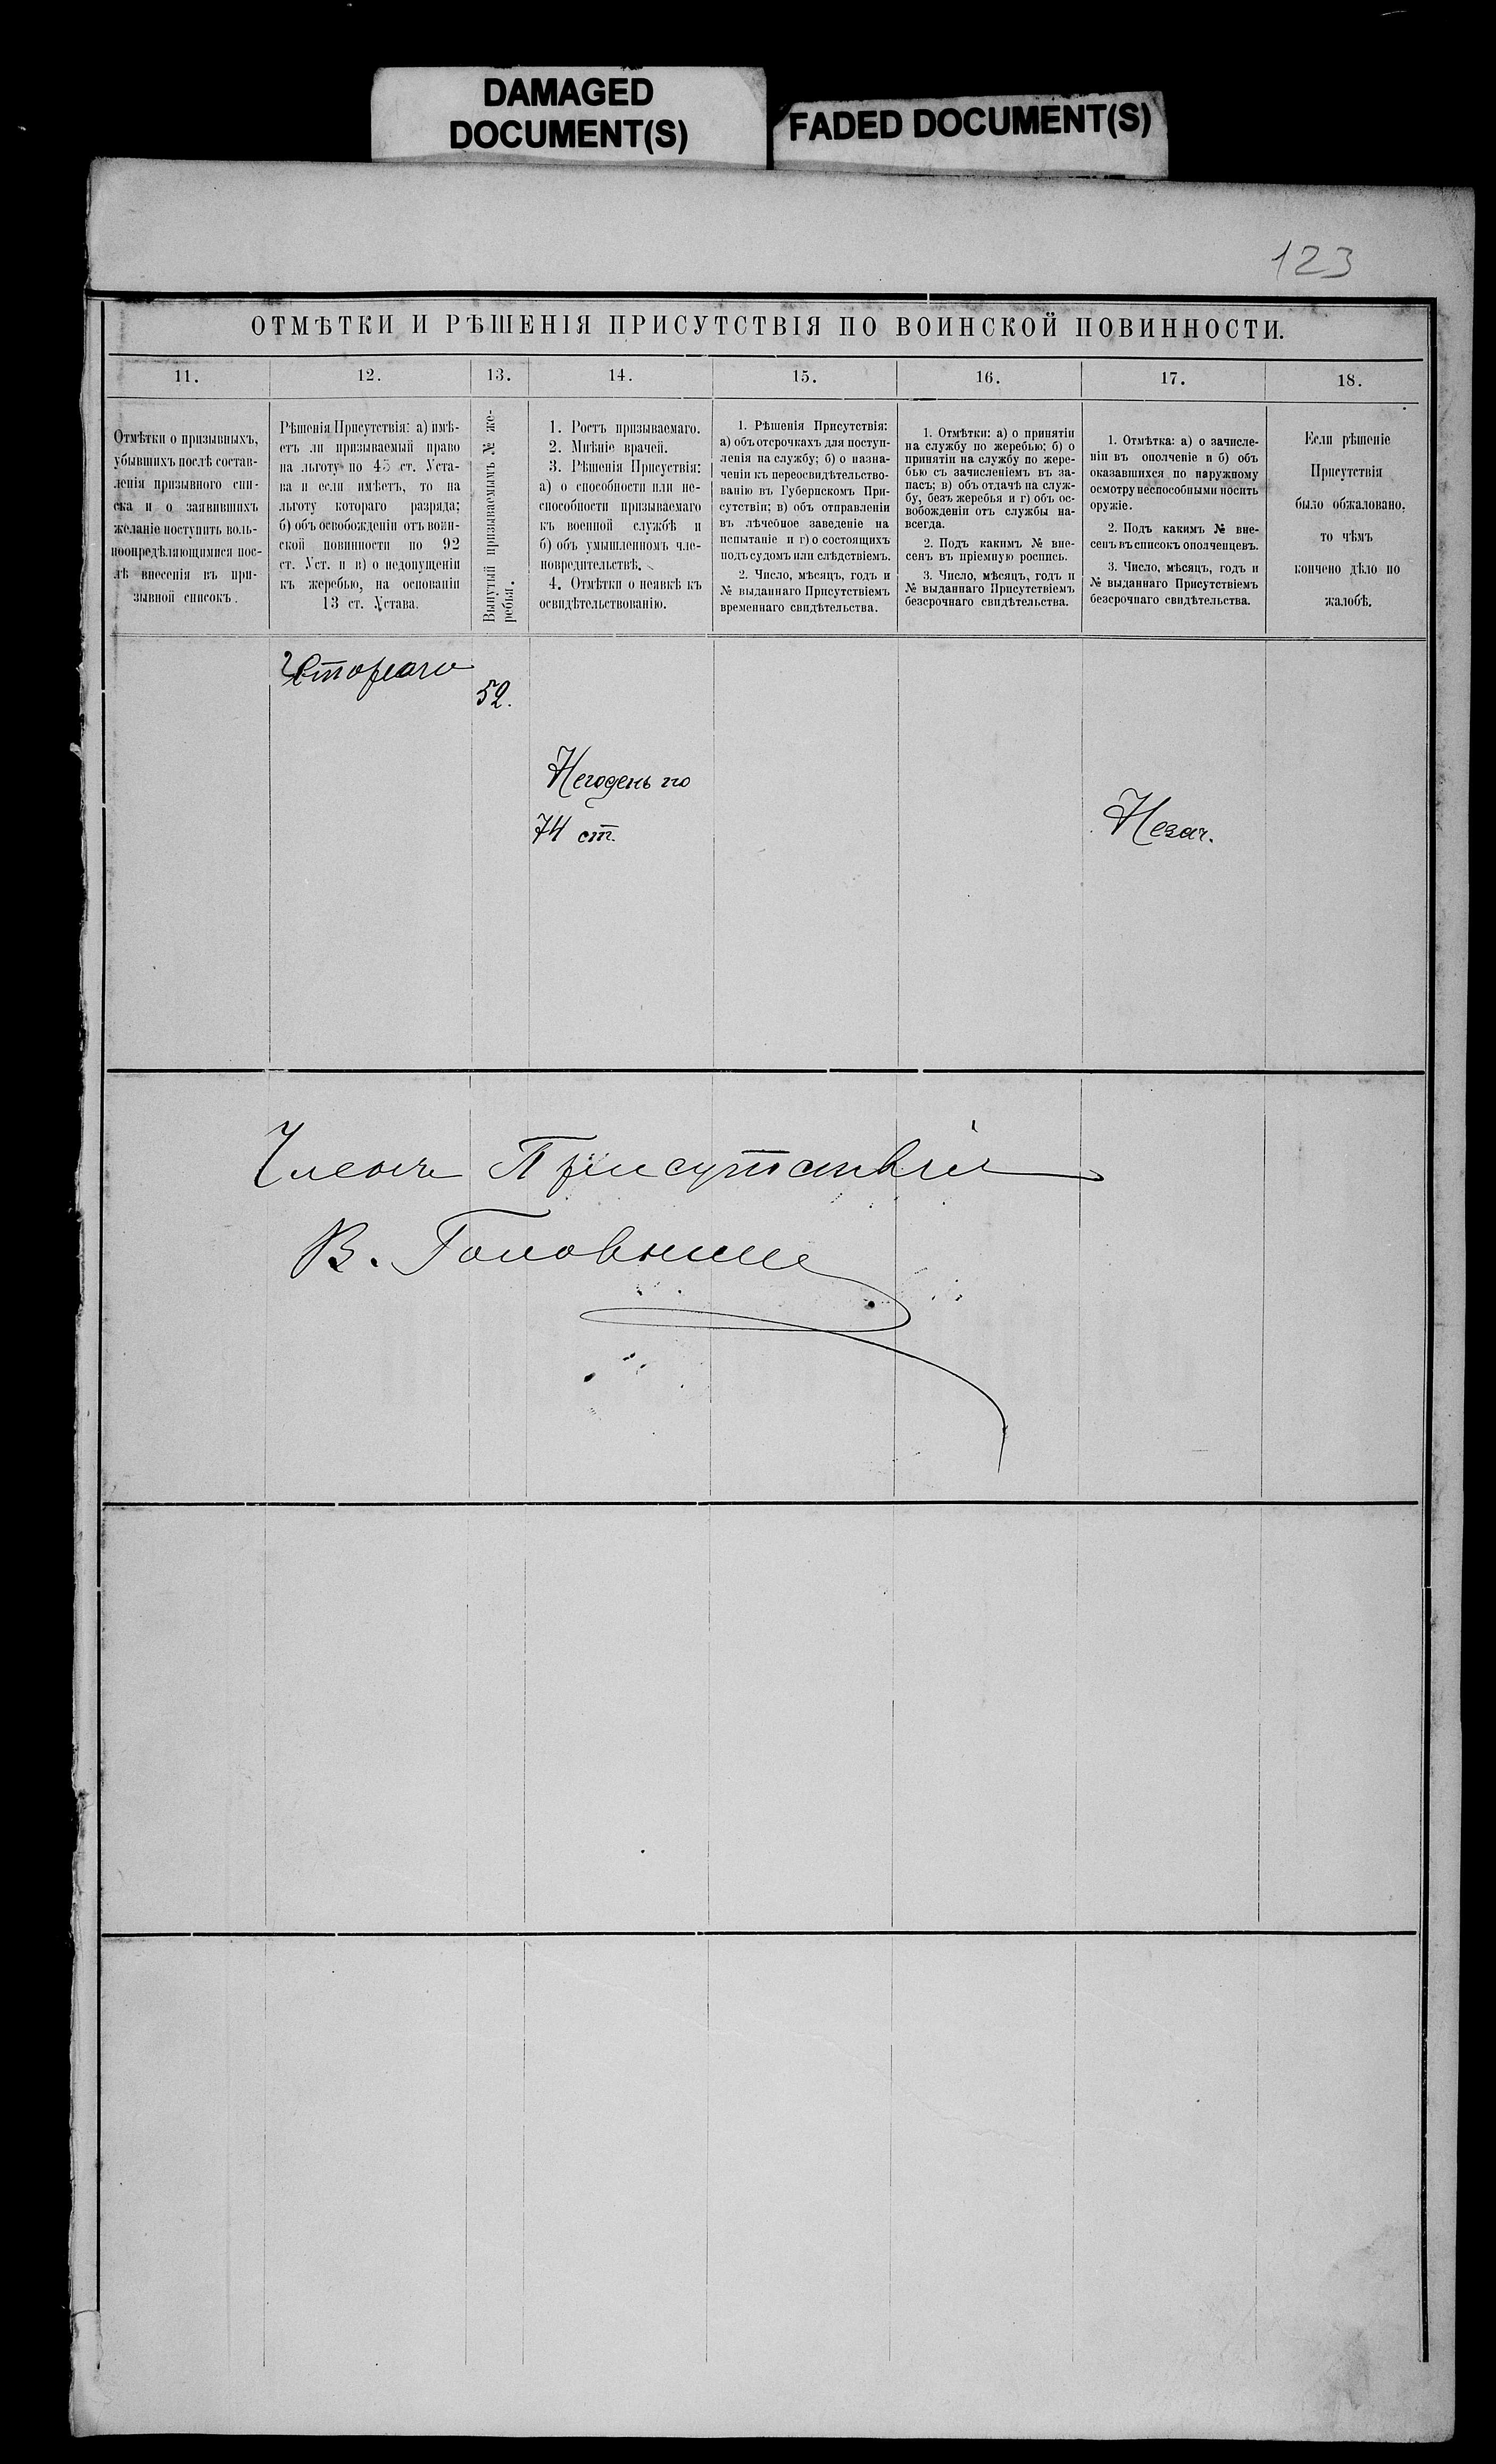 DAMAGED
DOCUMENT(S)
FADED DOCUMENT(S)
123
ОТМѢТКИ И РѢШЕНІЯ ПРИСУТСТВІЯ ПО ВОИНСКОЙ ПОВИННОСТИ.
11.
12.
13.
14.
15.
16.
17.
18.
Отмѣтки о призывныхъ,
убывшихъ послѣ состав-
ленія призывного спи-
ска и о заявившихъ
желаніе поступить воль-
ноопредѣляющимися пос-
лѣ внесенія въ при-
зывной списокъ.
Рѣшенія Присутствія: а) имѣ-
етъ ли призываемый право
на льготу по 45 ст. Уста-
ва и если имѣетъ, то на
льготу котораго разряда;
б) объ освобожденіи отъ воин-
ской повинности по 92
ст. Уст. и в) о недопущеніи
къ жеребью, на основаніи
13 ст. Устава.
Вынутый призываемымъ № же-
ребья.
1. Ростъ призываемаго.
2. Мнѣніе врачей.
3. Рѣшенія Присуствія:
а) о способности или не-
способности призываемаго
къ военной службѣ и
б) объ умышленномъ чле-
новредительствѣ.
4. Отмѣтки о неявкѣ къ
освидѣтельствованію.
1. Рѣшенія Присутствія:
а) объ отсрочкахъ для поступ-
ленія на службу; б) о назна-
ченіи къ переосвидѣтельство-
ванію въ Губернскомъ При-
сутствіи; в) объ отправленіи
въ лѣчебное заведеніе на
испытаніе и г) о состоящихъ
подъ судомъ или слѣдствіемъ.
2. Число, мѣсяцъ, годъ и
№ выданнаго Присутствіемъ
временнаго свидѣтельства.
1. Отмѣтки: а) о принятіи
на службу по жеребью; б) о
принятіи на службу по жере-
бью съ зачисленіемъ въ за-
пасъ; в) объ отдачѣ на служ-
бу, безъ жеребья и г) объ ос-
вобожденіи отъ службы на-
всегда.
2. Подъ какимъ № вне-
сенъ въ пріемную роспись.
3. Число, мѣсяцъ, годъ и
№ выданнаго Присутствіемъ
безсрочнаго свидѣтельства.
1. Отмѣтка: а) о зачисле-
ніи въ ополченіе и б) объ
оказавшихся по наружному
осмотру неспособными носить
оружіе.
2. Подъ какимъ № вне-
сенъ въ списокъ ополченцевъ.
3. Число, мѣсяцъ, годъ и
№ выданнаго Присутствіемъ
безсрочнаго свидѣтельства.
Если рѣшеніе
Присутствія
было обжаловано,
то чѣмъ
кончено дѣло по
жалобѣ.
Втораго
52.
Негоденъ по
74 ст.
Незач.
Членъ Присутствія
В.